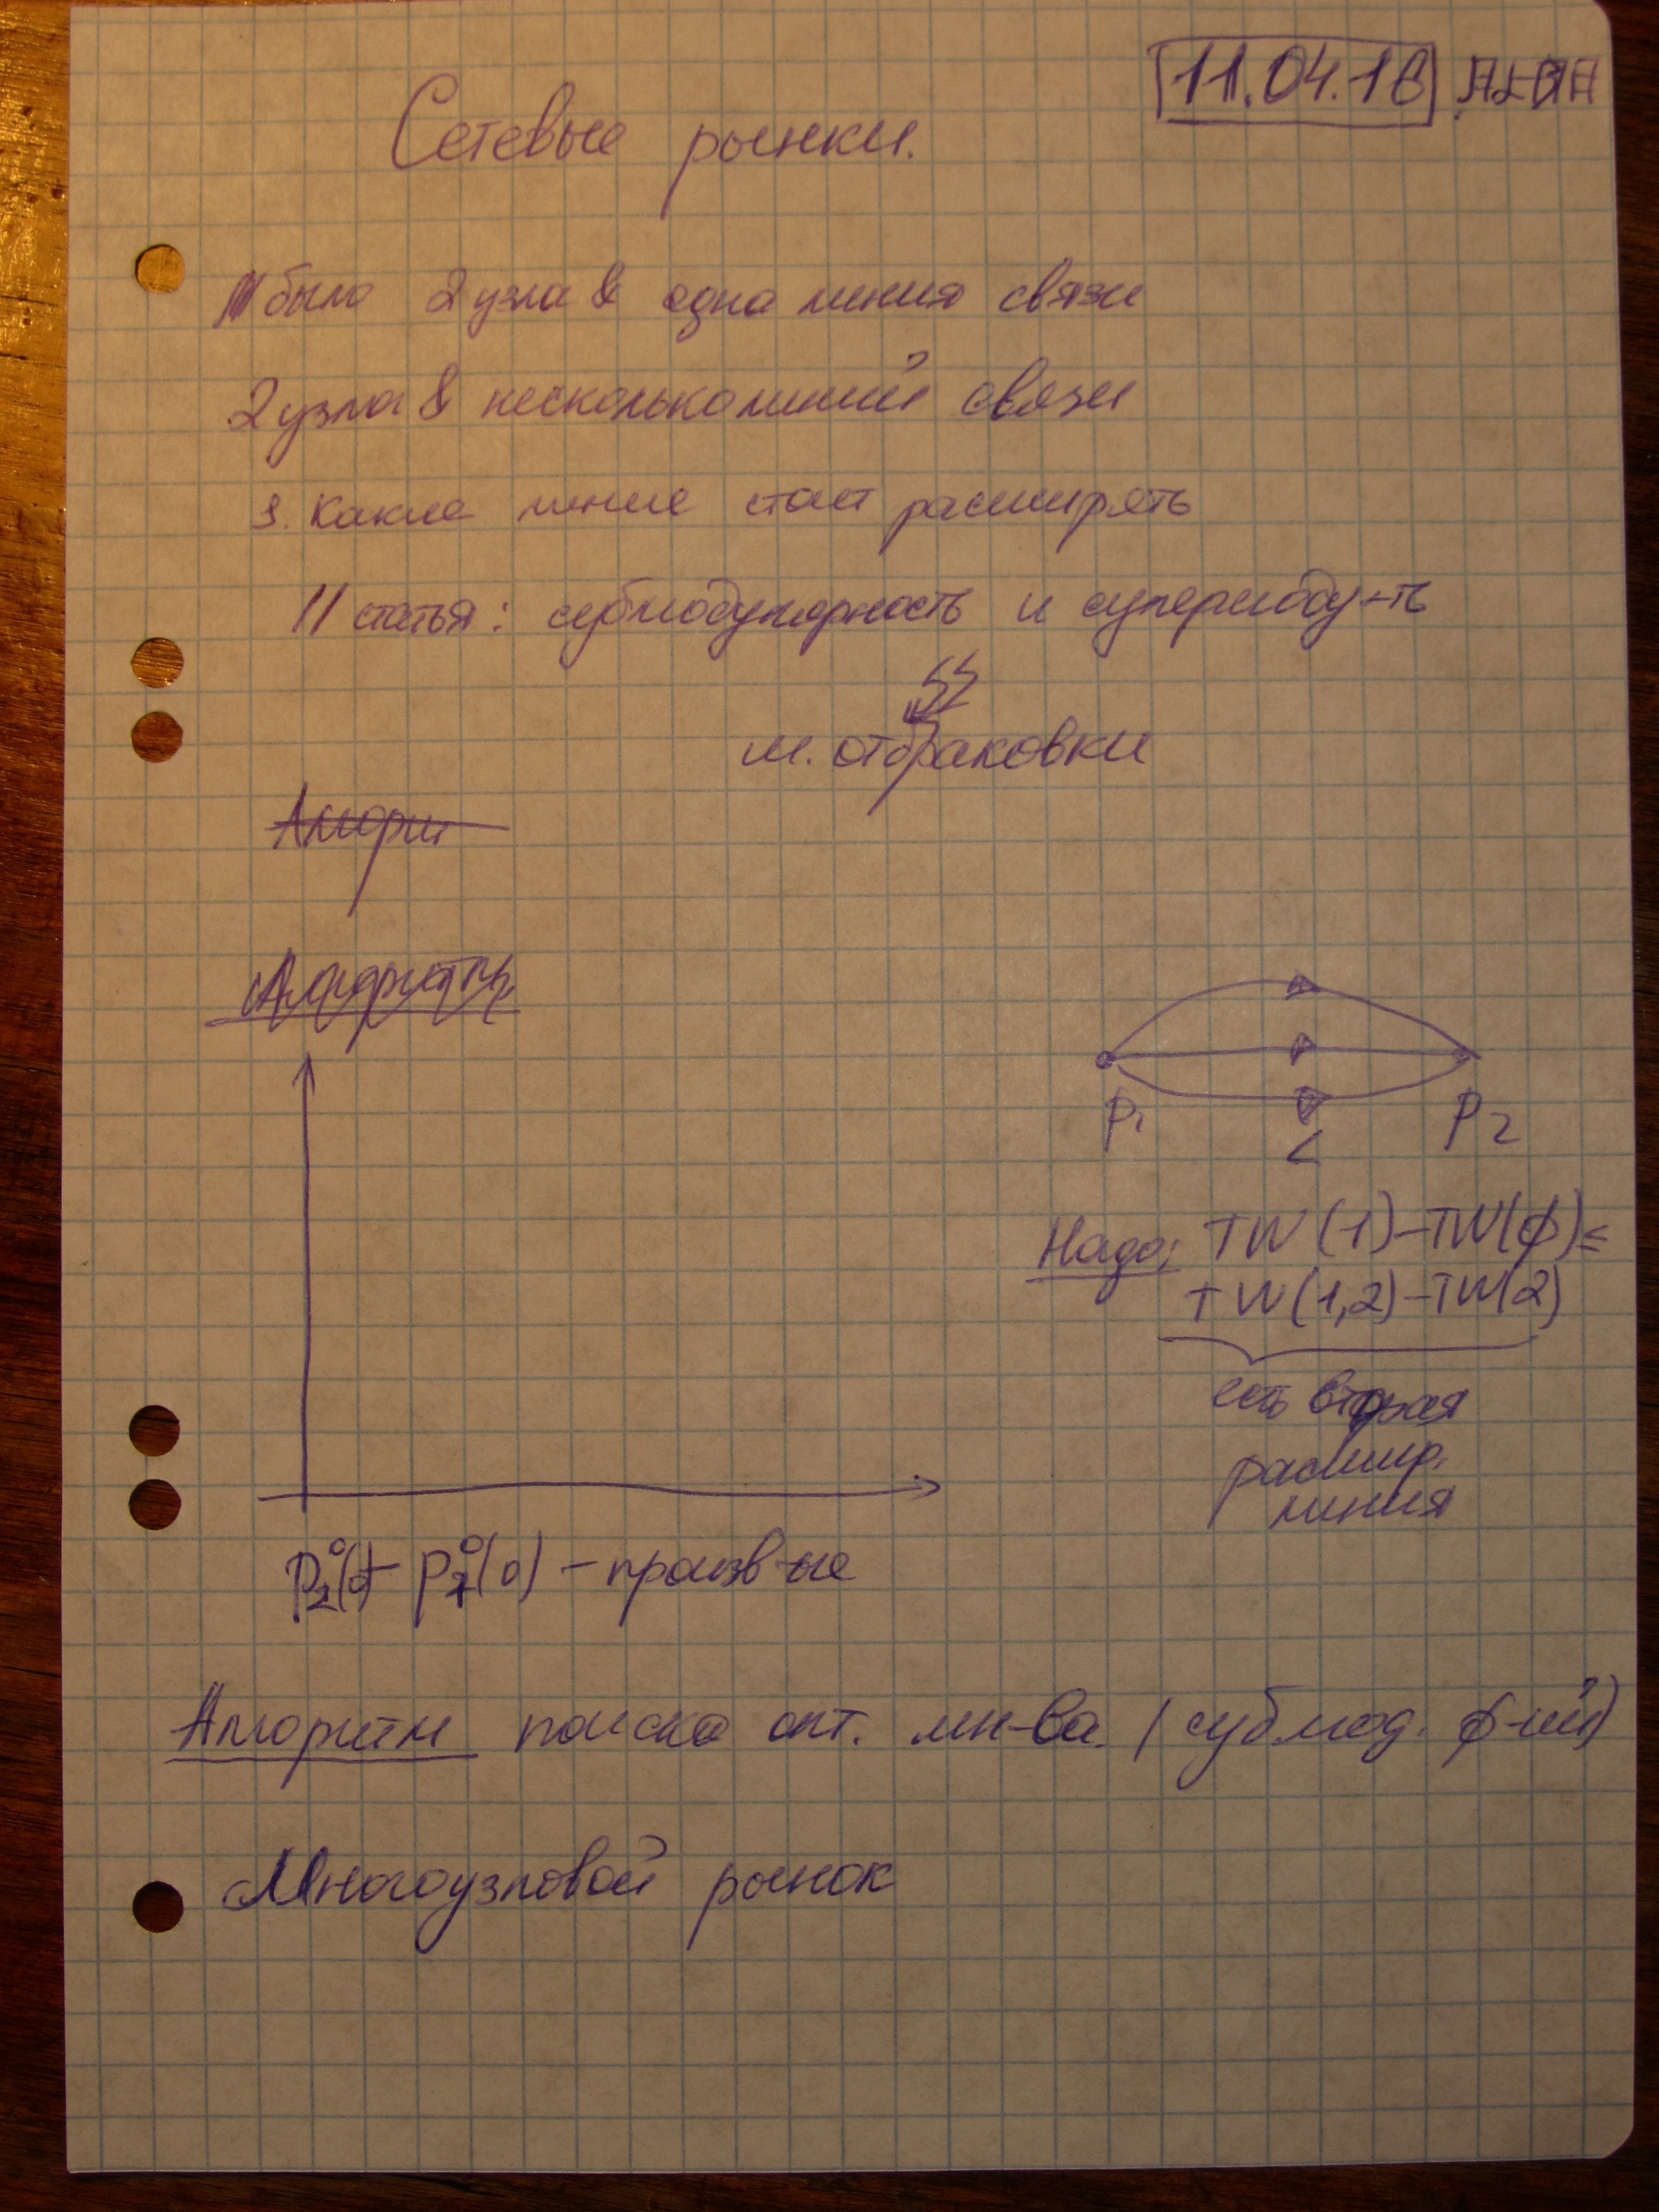 11.04.16
Сетевые рынки.
было 2 узла & одна линия связи
2 узла & несколько линий связи
1. Какие линие стоит расширять
// статья: субмодулярность и супермоду-ть
м. отбраковки
Алгорит
Алгоритм
P₁ P₂
Надо: TW(1)-TW(ϕ)≤
TW(1,2)-TW(2)
есть вторая
расшир.
линия
P₂⁰(0)- P₁⁰(0) - произв-ые
Алгоритм поиска опт. мн-ва. (субмод. ф-ий)
Многоузловой рынок